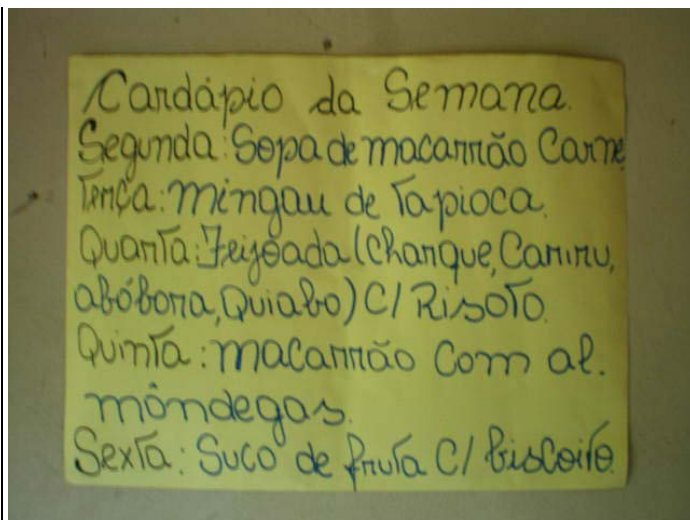 Cardápio da Semana.
Segunda: Sopa de macarrão Carne
Terça: mingau de Tapioca.
Quarta: Feijoada (Charque, Cariru,
abóbora, Quiabo) C/ Risoto.
Quinta: macarrão Com al.
môndegas.
Sexta: Suco de fruta C/ biscoito.